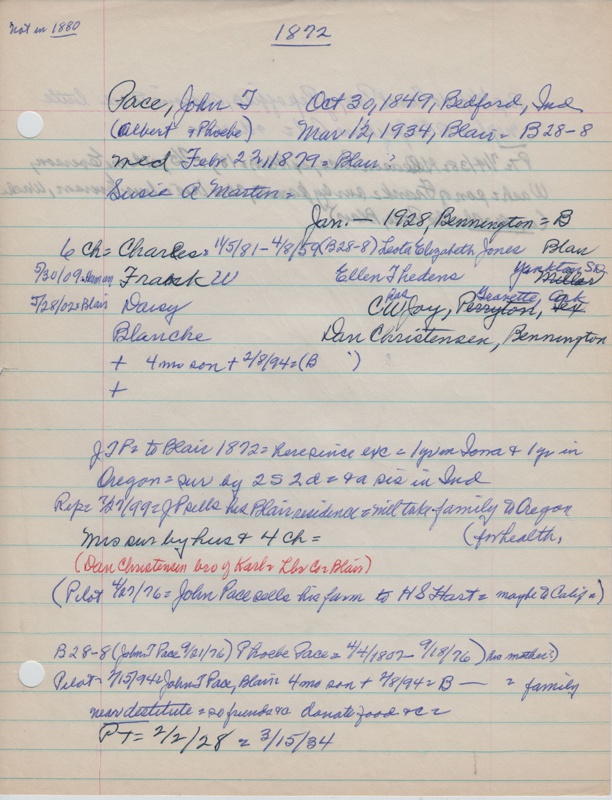 Not in 1880
1872
Pace, John T Oct 30, 1849, Bedford, Ind
(Albert + Phoebe) Mar 12, 1934, Blair = B 28-8
md Feb 27, 1879 = Blair
Susie A Martin =
Jan. — 1928, Bennington = B
6 Ch = Charles = 11/5/81 - 4/8/59 (B28-8) Leota Elizabeth Jones Blair
5/30/09 = Herman Frank W Ellen Thedens Yankton SD Millar
5/28/02 = Blair Daisy C W Joy, Perryton, Tex Gravette, Ark
Blanche Dan Christensen, Bennington
+ 4 mo son + 2/8/94 = (B )
+
J T P = to Blair 1872 = here since exc = 1 yr in Iowa + 1 yr in
Oregon = sur by 2 S 2 d = + a sis in Ind
Rep = 7/27/99 = J P sells his Blair residence = will take family to Oregon
(for health,
Mrs sur by hus + 4 Ch =
(Dan Christensen bro of Karl = Lbr Co Blair)
(Pilot 4/27/76 = John Pace sells his farm to H S Hart = maybe to Calif =)
B 28-8 (John T Pace 9/21/76) Phoebe Pace = 4/4/1802 - 9/18/76) his mother?)
Pilot - 2/15/94 = John T Pace, Blair = 4 mo son + 2/8/94 = B — = family
near destitute = so friends donate food + c =
PT = 2/2/28 = 3/15/34